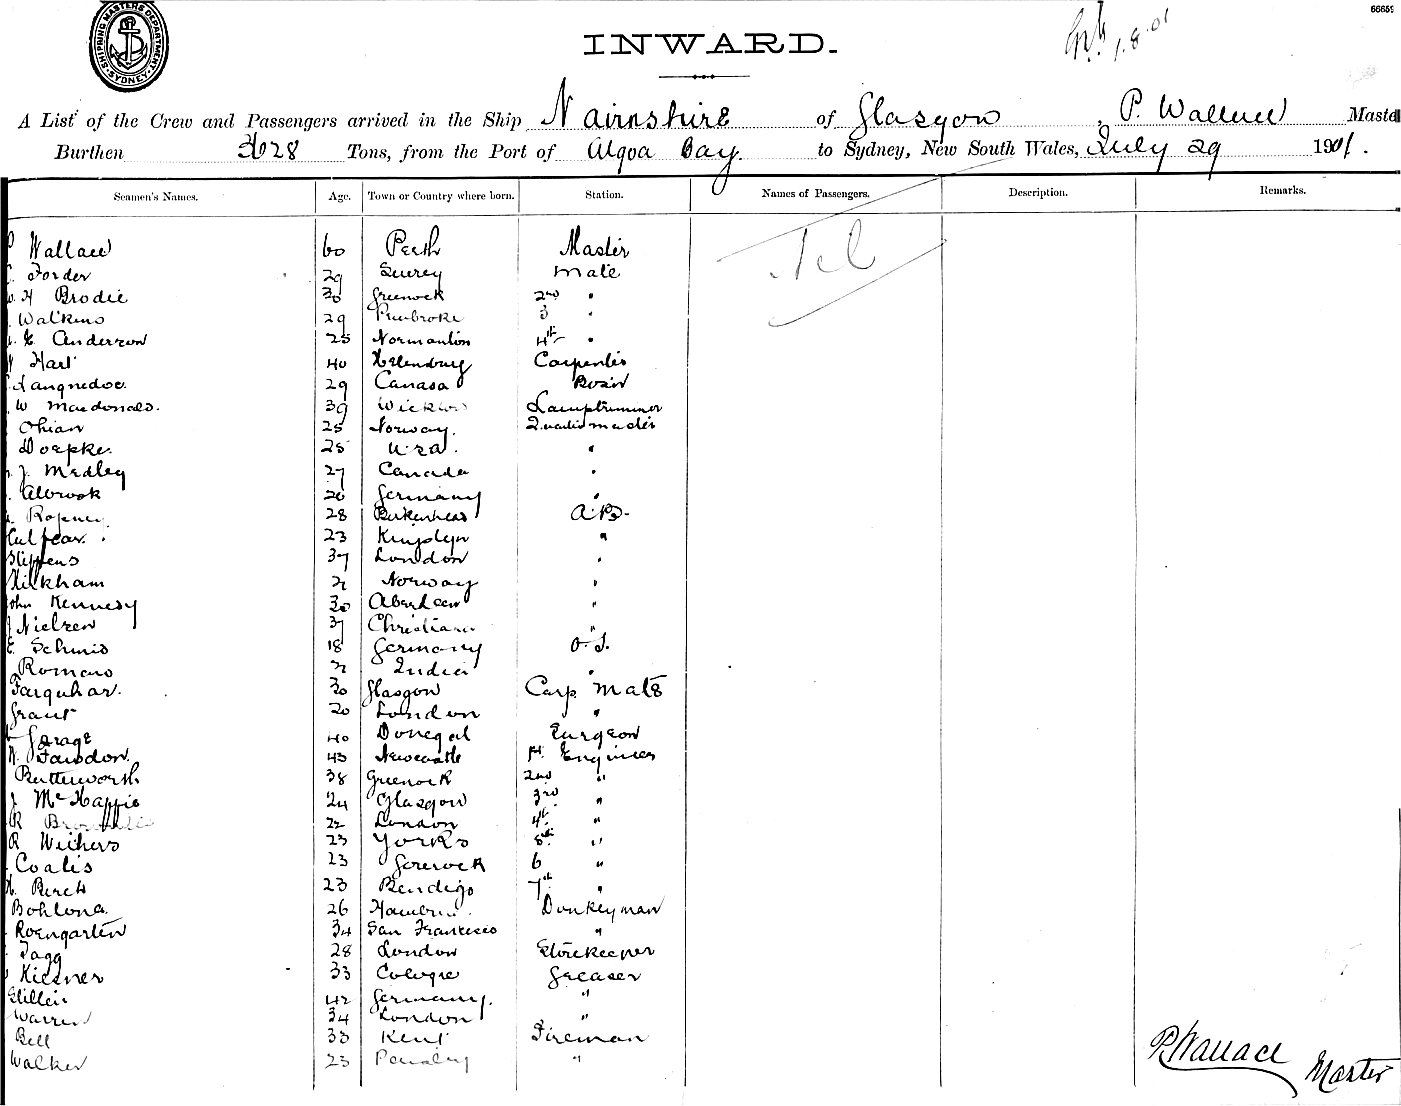 SHIPPING MASTERS DEPARTMENT SYDNEY
66659
INWARD.
1.8.01
A List of the Crew and Passengers arrived in the Ship Nairnshire of Glasgow, P. Wallace Master
Burthen Tons, from the Port of Algoa Bay to Sydney, New South Wales, July 29 1901.
Seamen's Names. Age. Town or Country where born. Station. Names of Passengers. Description. Remarks.
Wallace 60 Perth Master Nil
Forder 29 Surrey Mate
H Brodie 30 Greenock 2nd "
Watkins 29 Pembroke 3 "
Anderson 25 Normanton 4th "
Hart 40 Helensburg Carpenter
Langnedoc. 29 Canada Bosn
W Macdonald. 39 Wicklow Lamptrimmer
Ohian 25 Norway. Quartermaster
Doepke. 25 USA. "
J. Medley 27 Canada "
Albrook 20 Germany "
28 Birkenhead A.B.
Culpear. 23 Kingslyn "
Steffens 37 London "
Kirkham 21 Norway "
John Kennedy 30 Aberdeen "
Nielsen 37 Christiana "
E. Schmid 18 Germany O.S.
Romans 21 India "
Farquhar. 30 Glasgow Carp. Mate
Grant 20 London "
Gorage 40 Donegal Surgeon
W. Fawdon. 43 Newcastle Engineer
Butterworth. 38 Greenock 2nd "
J McHaffie 24 Glasgow 3rd "
R 22 London 4th "
R Withers 23 Yorks 5th "
Coatis 23 Gourock 6 "
Birch 23 Bendigo 7th "
Bohlona. 26 Donkeyman
Roengarten 34 San Francisco "
Tagg 28 London Storekeeper
Kiesner 33 Cologne Greaser
42 Germany. "
Warren 34 London "
Bell 33 Kent Fireman
Walker 23 "
P. Wallace Master